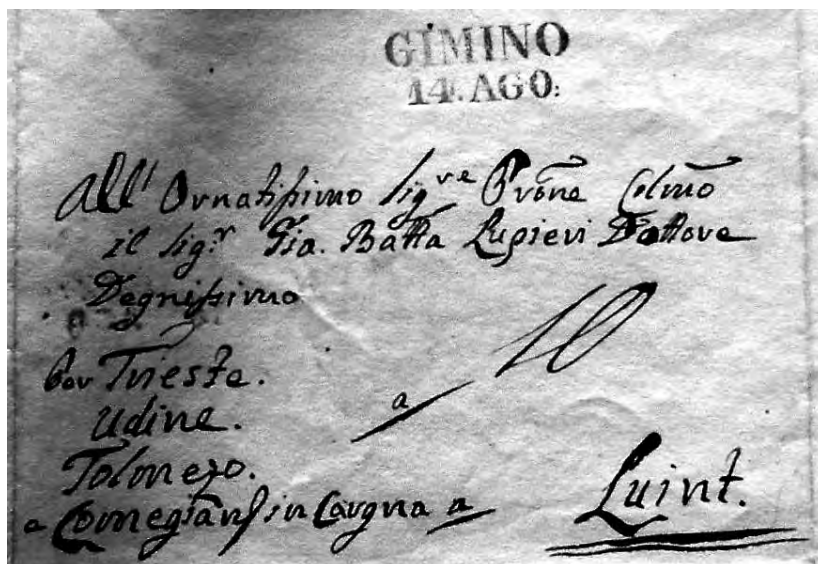 GIMINO
14. AGO:
All' Ornatissimo Sig.re Prōne Colmo
il Sig.r Gio. Batta Lupieri Dottore
Degnissimo
10
per Trieste.
Udine.
a
Tolmezo.
a Comegians in Cargna a Luint.